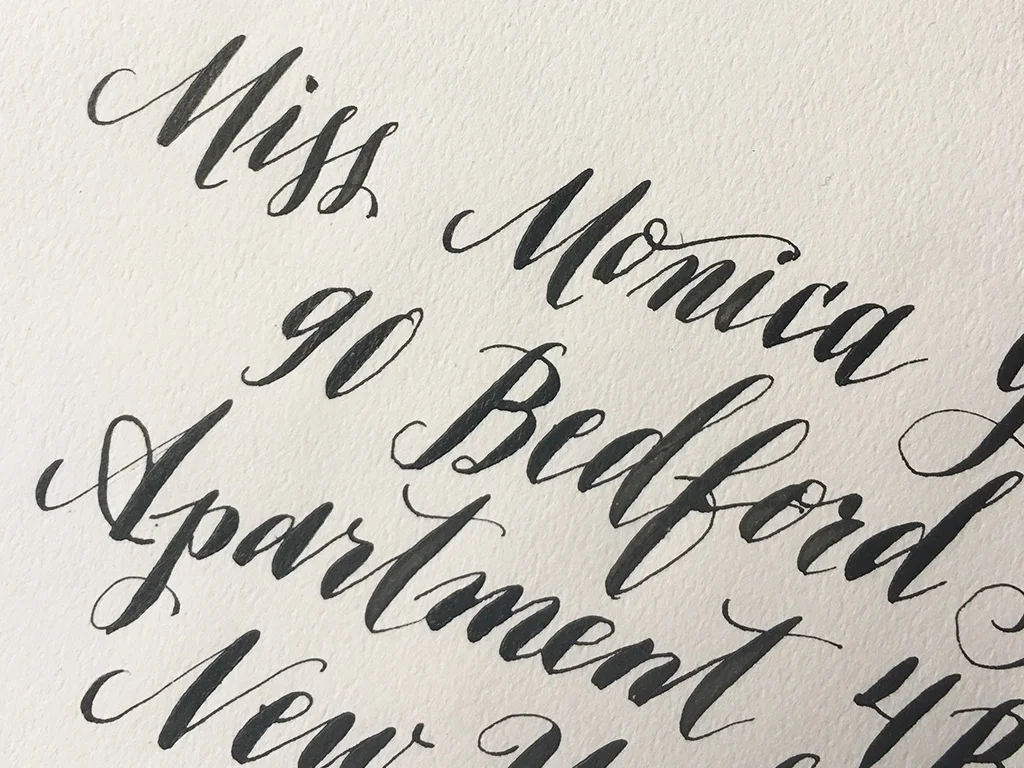 Miss Monica
90 Bedford
Apartment 4B
New